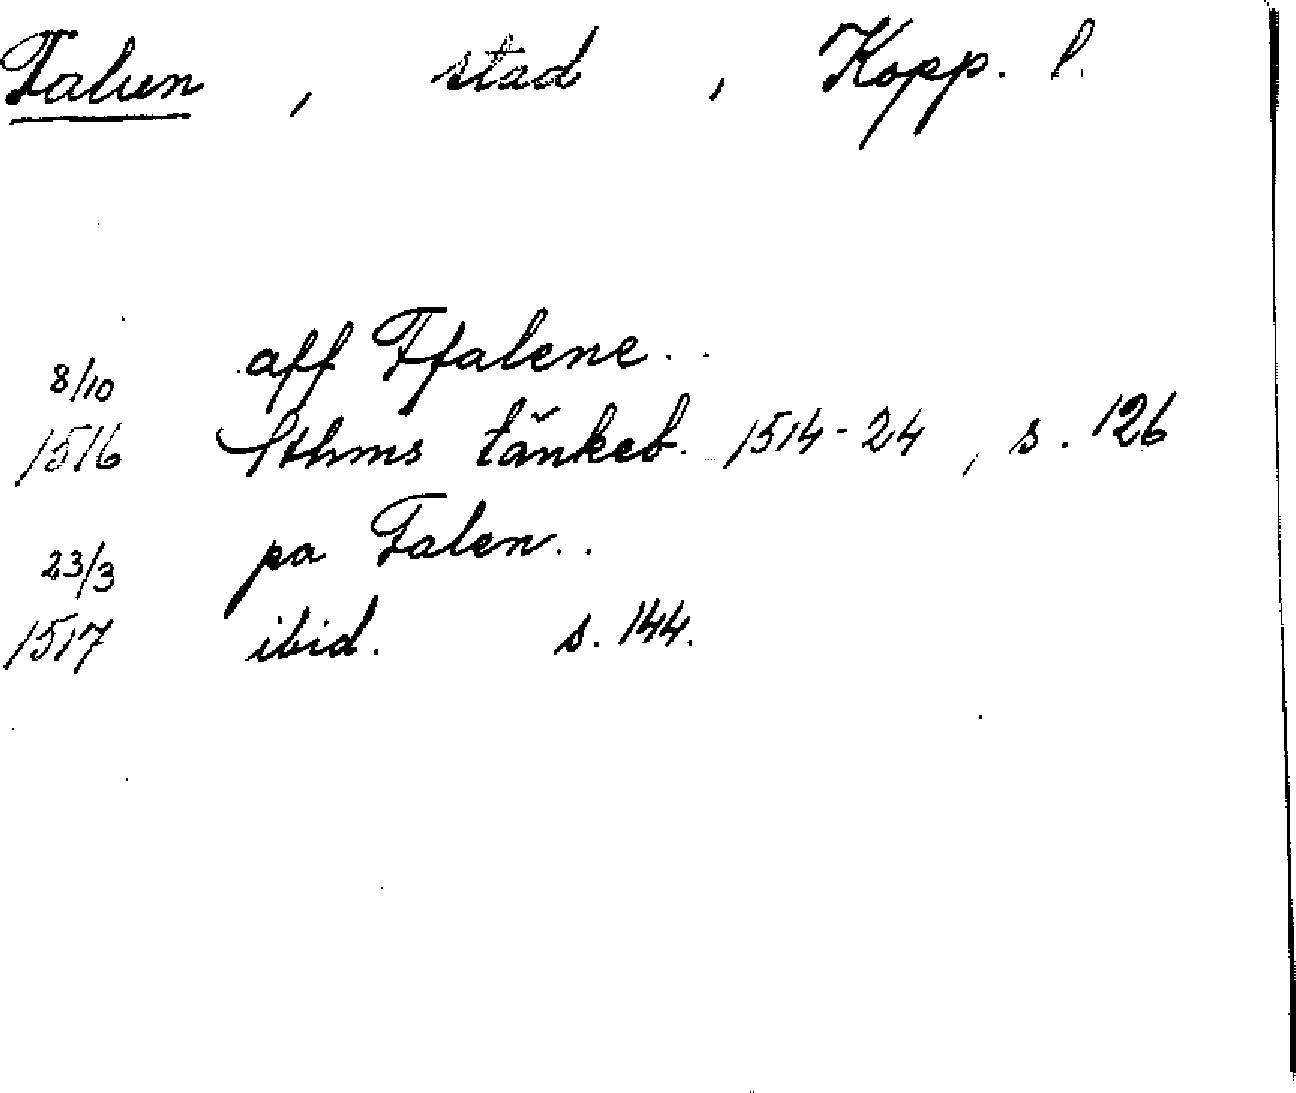 Falun , stad , Kopp. l.
8/10 aff Ffalene..
1516 Sthms tänkeb. 1514-24 , s. 126
23/3 pa Falen..
1517 ibid. s. 144.